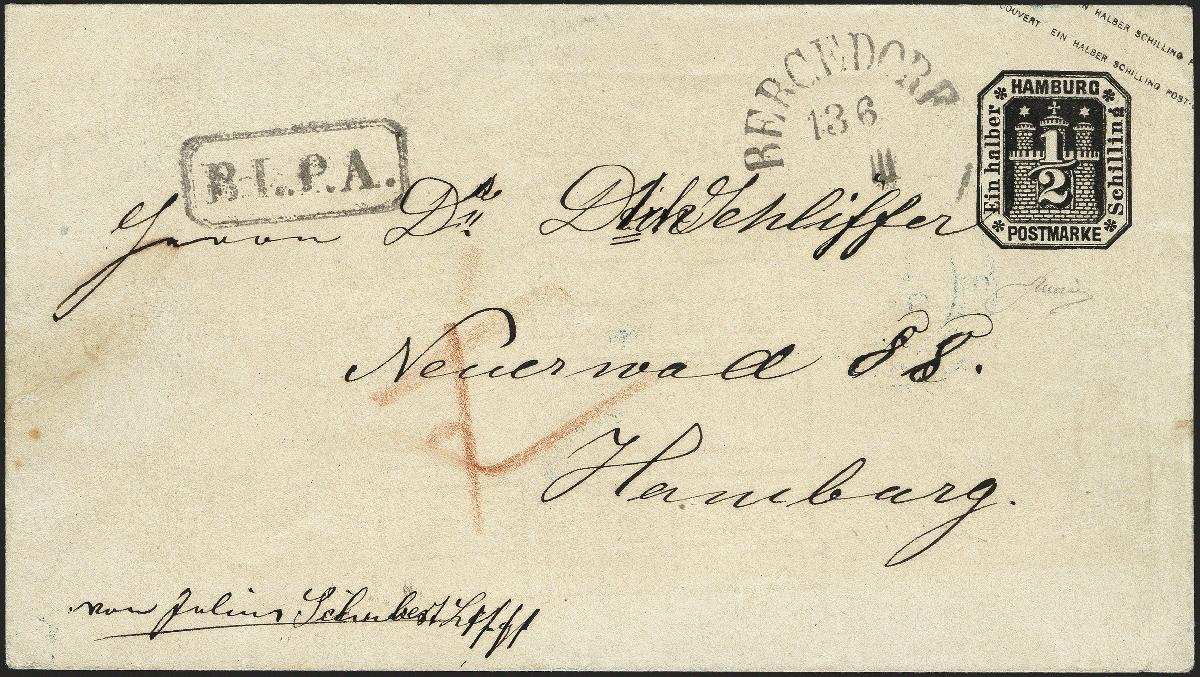 EIN HALBER SCHILLING
COUVERT EIN HALBER SCHILLING POST
BERGEDORF
13 6
III
HAMBURG
Ein halber
1/2
Schilling
POSTMARKE
B.L.P.A.
Herrn Dr. Schliffer
Neuerwad 88.
Hamburg.
von Julius Schubert